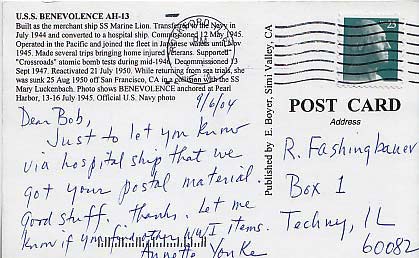 U.S.S. BENEVOLENCE AH-13
Built as the merchant ship SS Marine Lion. Transferred to the Navy in
July 1944 and converted to a hospital ship. Commissioned 12 May 1945.
Operated in the Pacific and joined the fleet in Japanese waters until Nov
1945. Made several trips bringing home injured veterans. Supported
"Crossroads" atomic bomb tests during mid-1946. Decommissioned 13
Sept 1947. Reactivated 21 July 1950. While returning from sea trials, she
was sunk 25 Aug 1950 off San Francisco, CA in a collision with the SS
Mary Luckenbach. Photo shows BENEVOLENCE anchored at Pearl
Harbor, 13-16 July 1945. Official U.S. Navy photo
9/6/04
Dear Bob,
Just to let you know
via hospital ship that we
got your postal material.
Good stuff. Thanks. Let me
know if you find other WWI items.
Annette
Published by E. Boyer, Simi Valley, CA
25
POST CARD
Address
R. Fashingbauer
Box 1
Techny, IL
60082